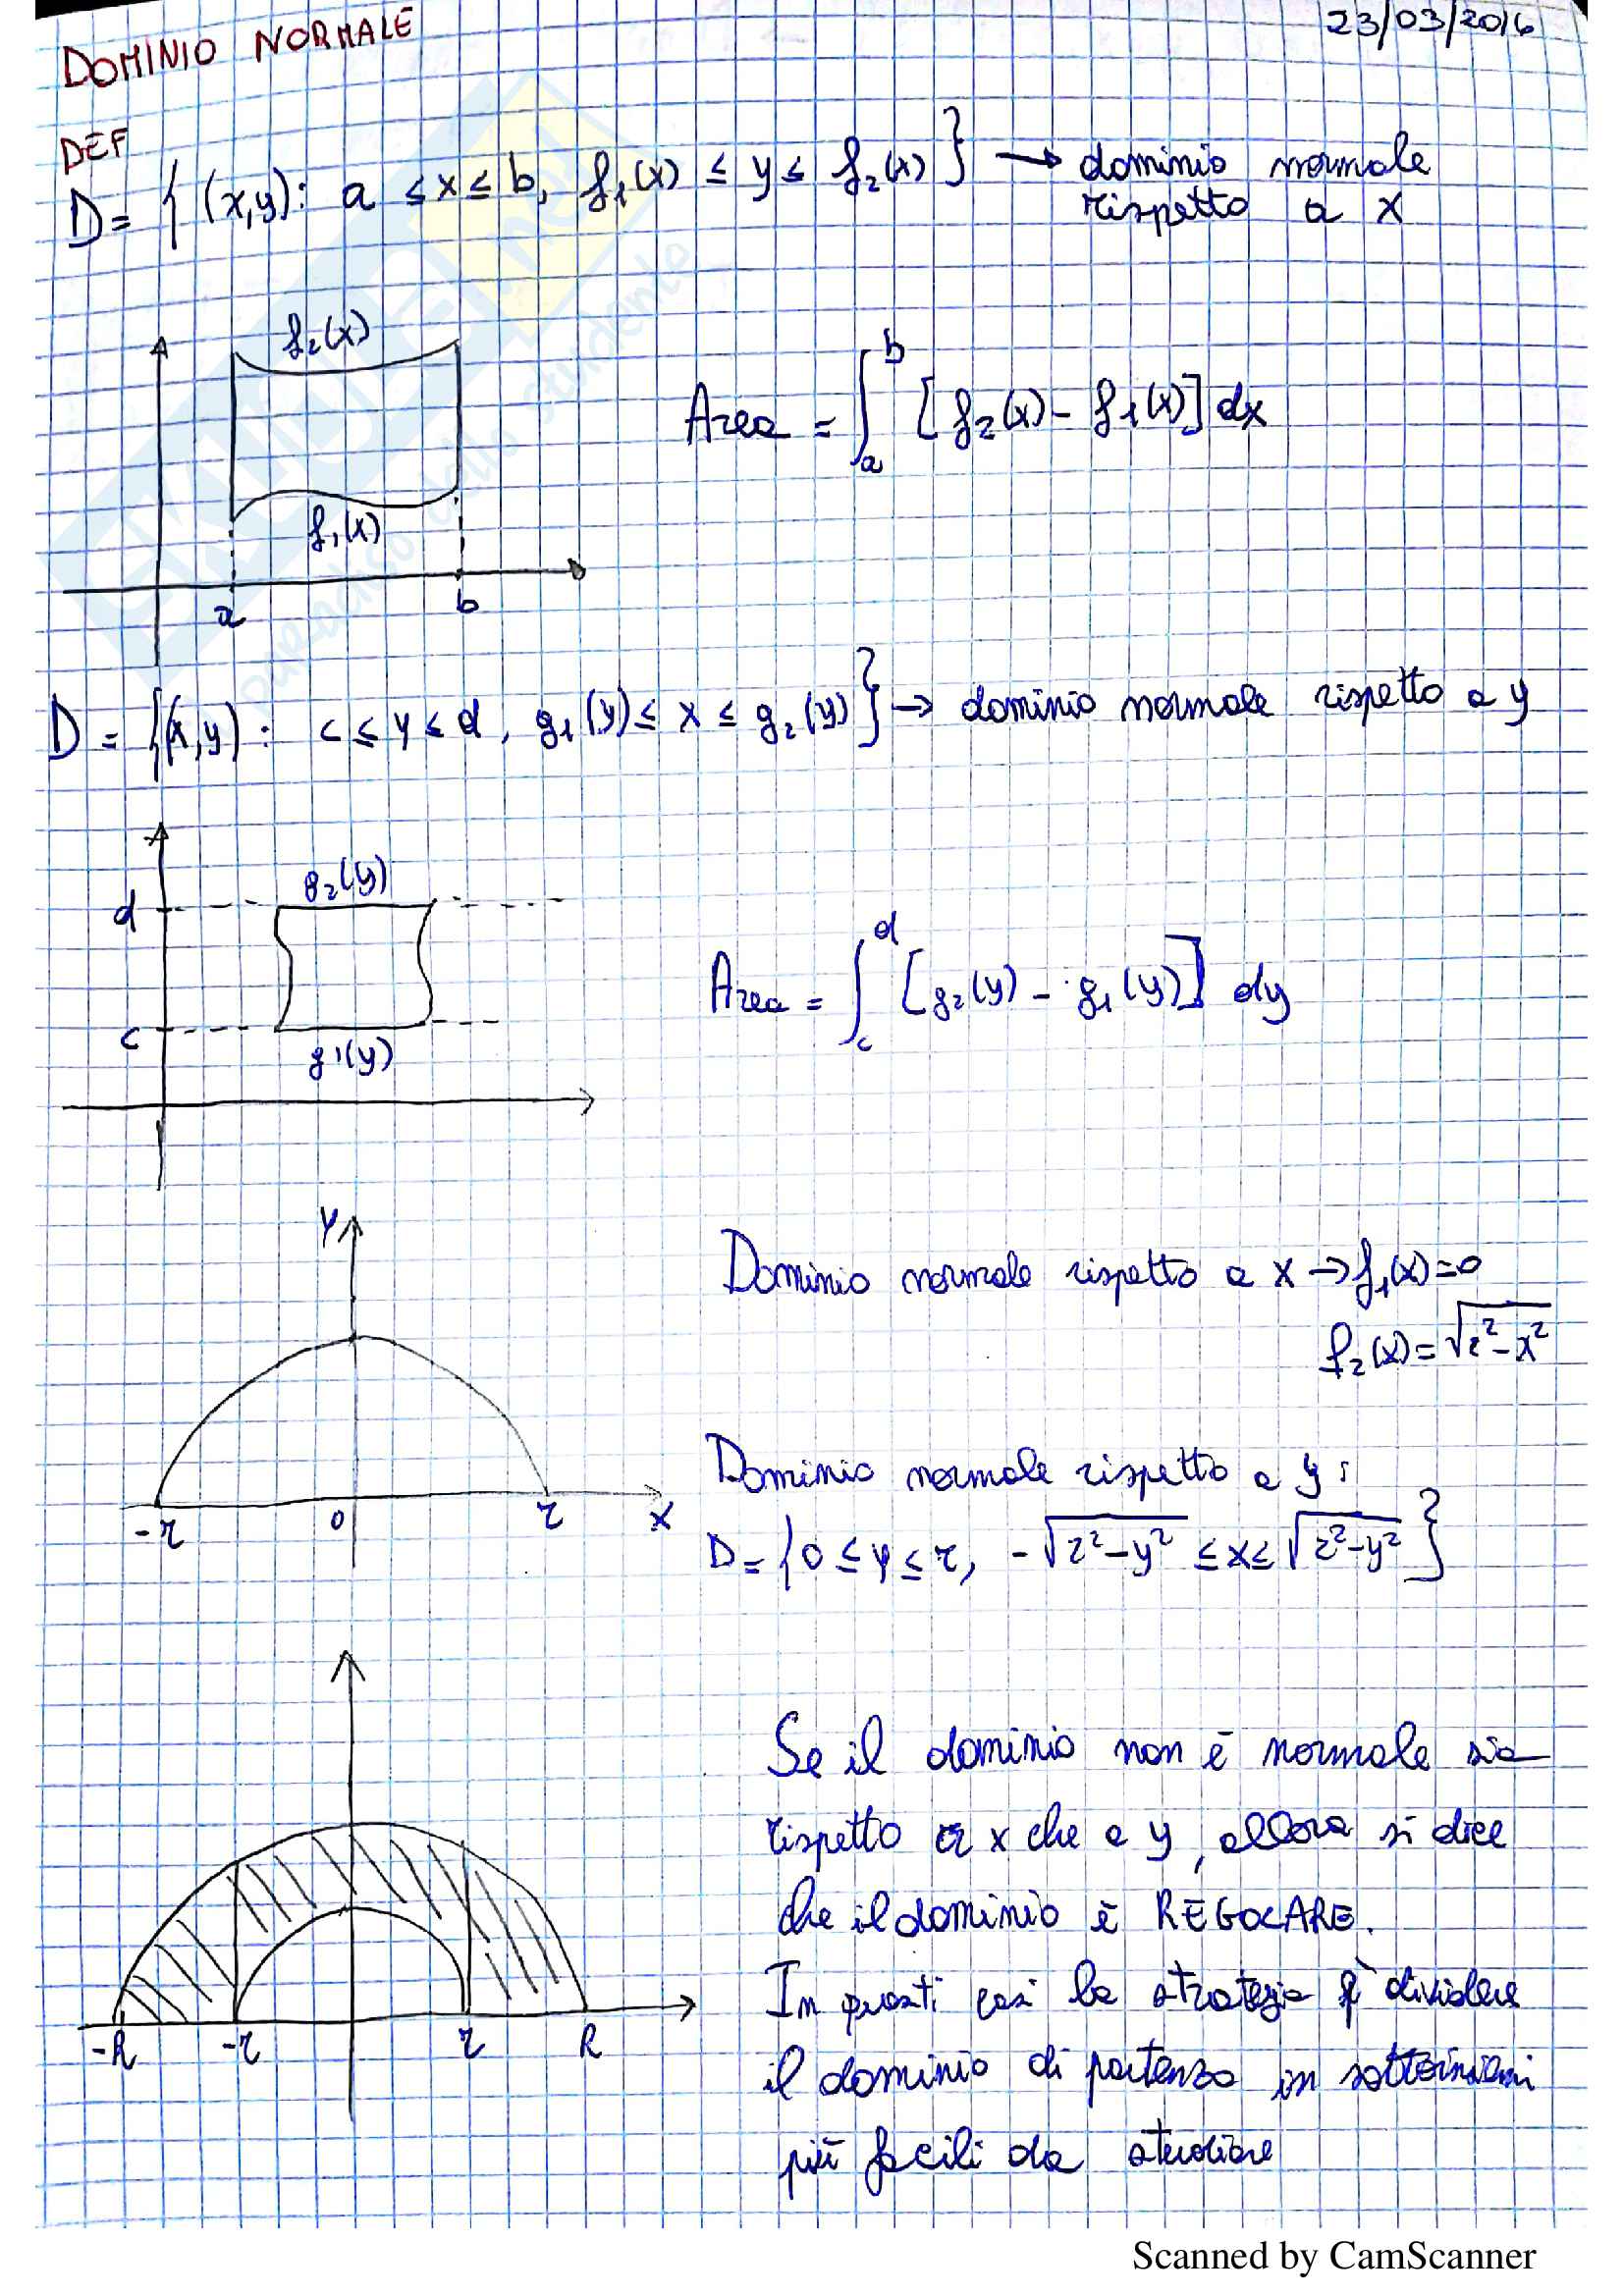 23/03/2016
DOMINIO NORMALE
DEF
D = { (x,y): a ≤ x ≤ b, f₁(x) ≤ y ≤ f₂(x) } → dominio normale
rispetto a x
f₂(x)
Area = ∫ₐᵇ [f₂(x) - f₁(x)] dx
f₁(x)
a b
D = {(x,y): c ≤ y ≤ d, g₁(y) ≤ x ≤ g₂(y)} → dominio normale rispetto a y
g₂(y)
d
Area = ∫_c^d [g₂(y) - g₁(y)] dy
c
g₁(y)
y
Dominio normale rispetto a x → f₁(x)=0
f₂(x)=√(r²-x²)
Dominio normale rispetto a y:
-r 0 r x
D = {0 ≤ y ≤ r, -√(r²-y²) ≤ x ≤ √(r²-y²)}
Se il dominio non è normale sia
rispetto a x che a y, allora si dice
che il dominio è REGOLARE.
In questi casi la strategia è dividere
-R -r r R
il dominio di partenza in sottoinsiemi
più facili da studiare
Scanned by CamScanner